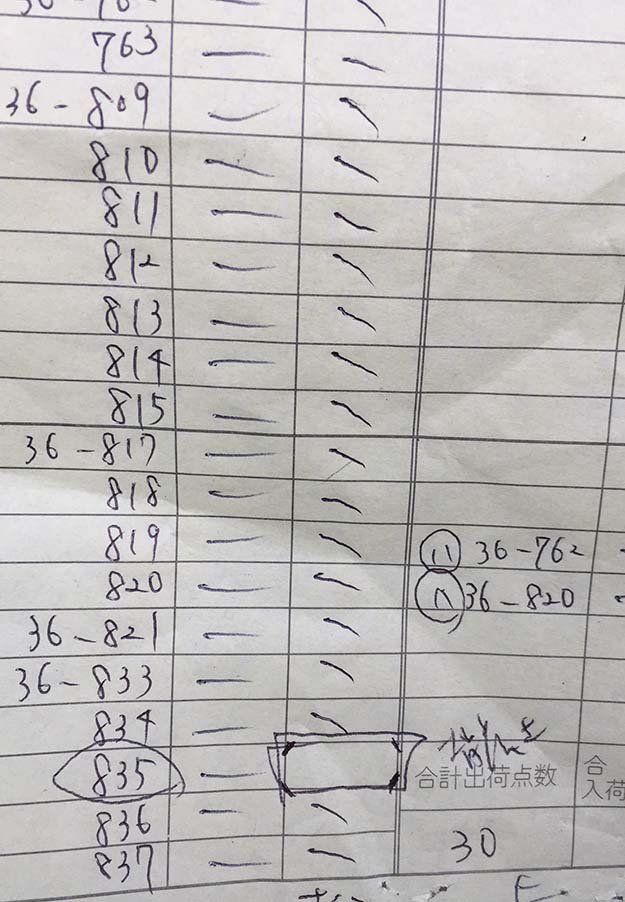 763
36-809
810
811
812
813
814
815
36-817
818
819
820
36-821
36-833
834
835
836
837
ハ 36-762
ハ 36-820
合計出荷点数
合
入荷
30